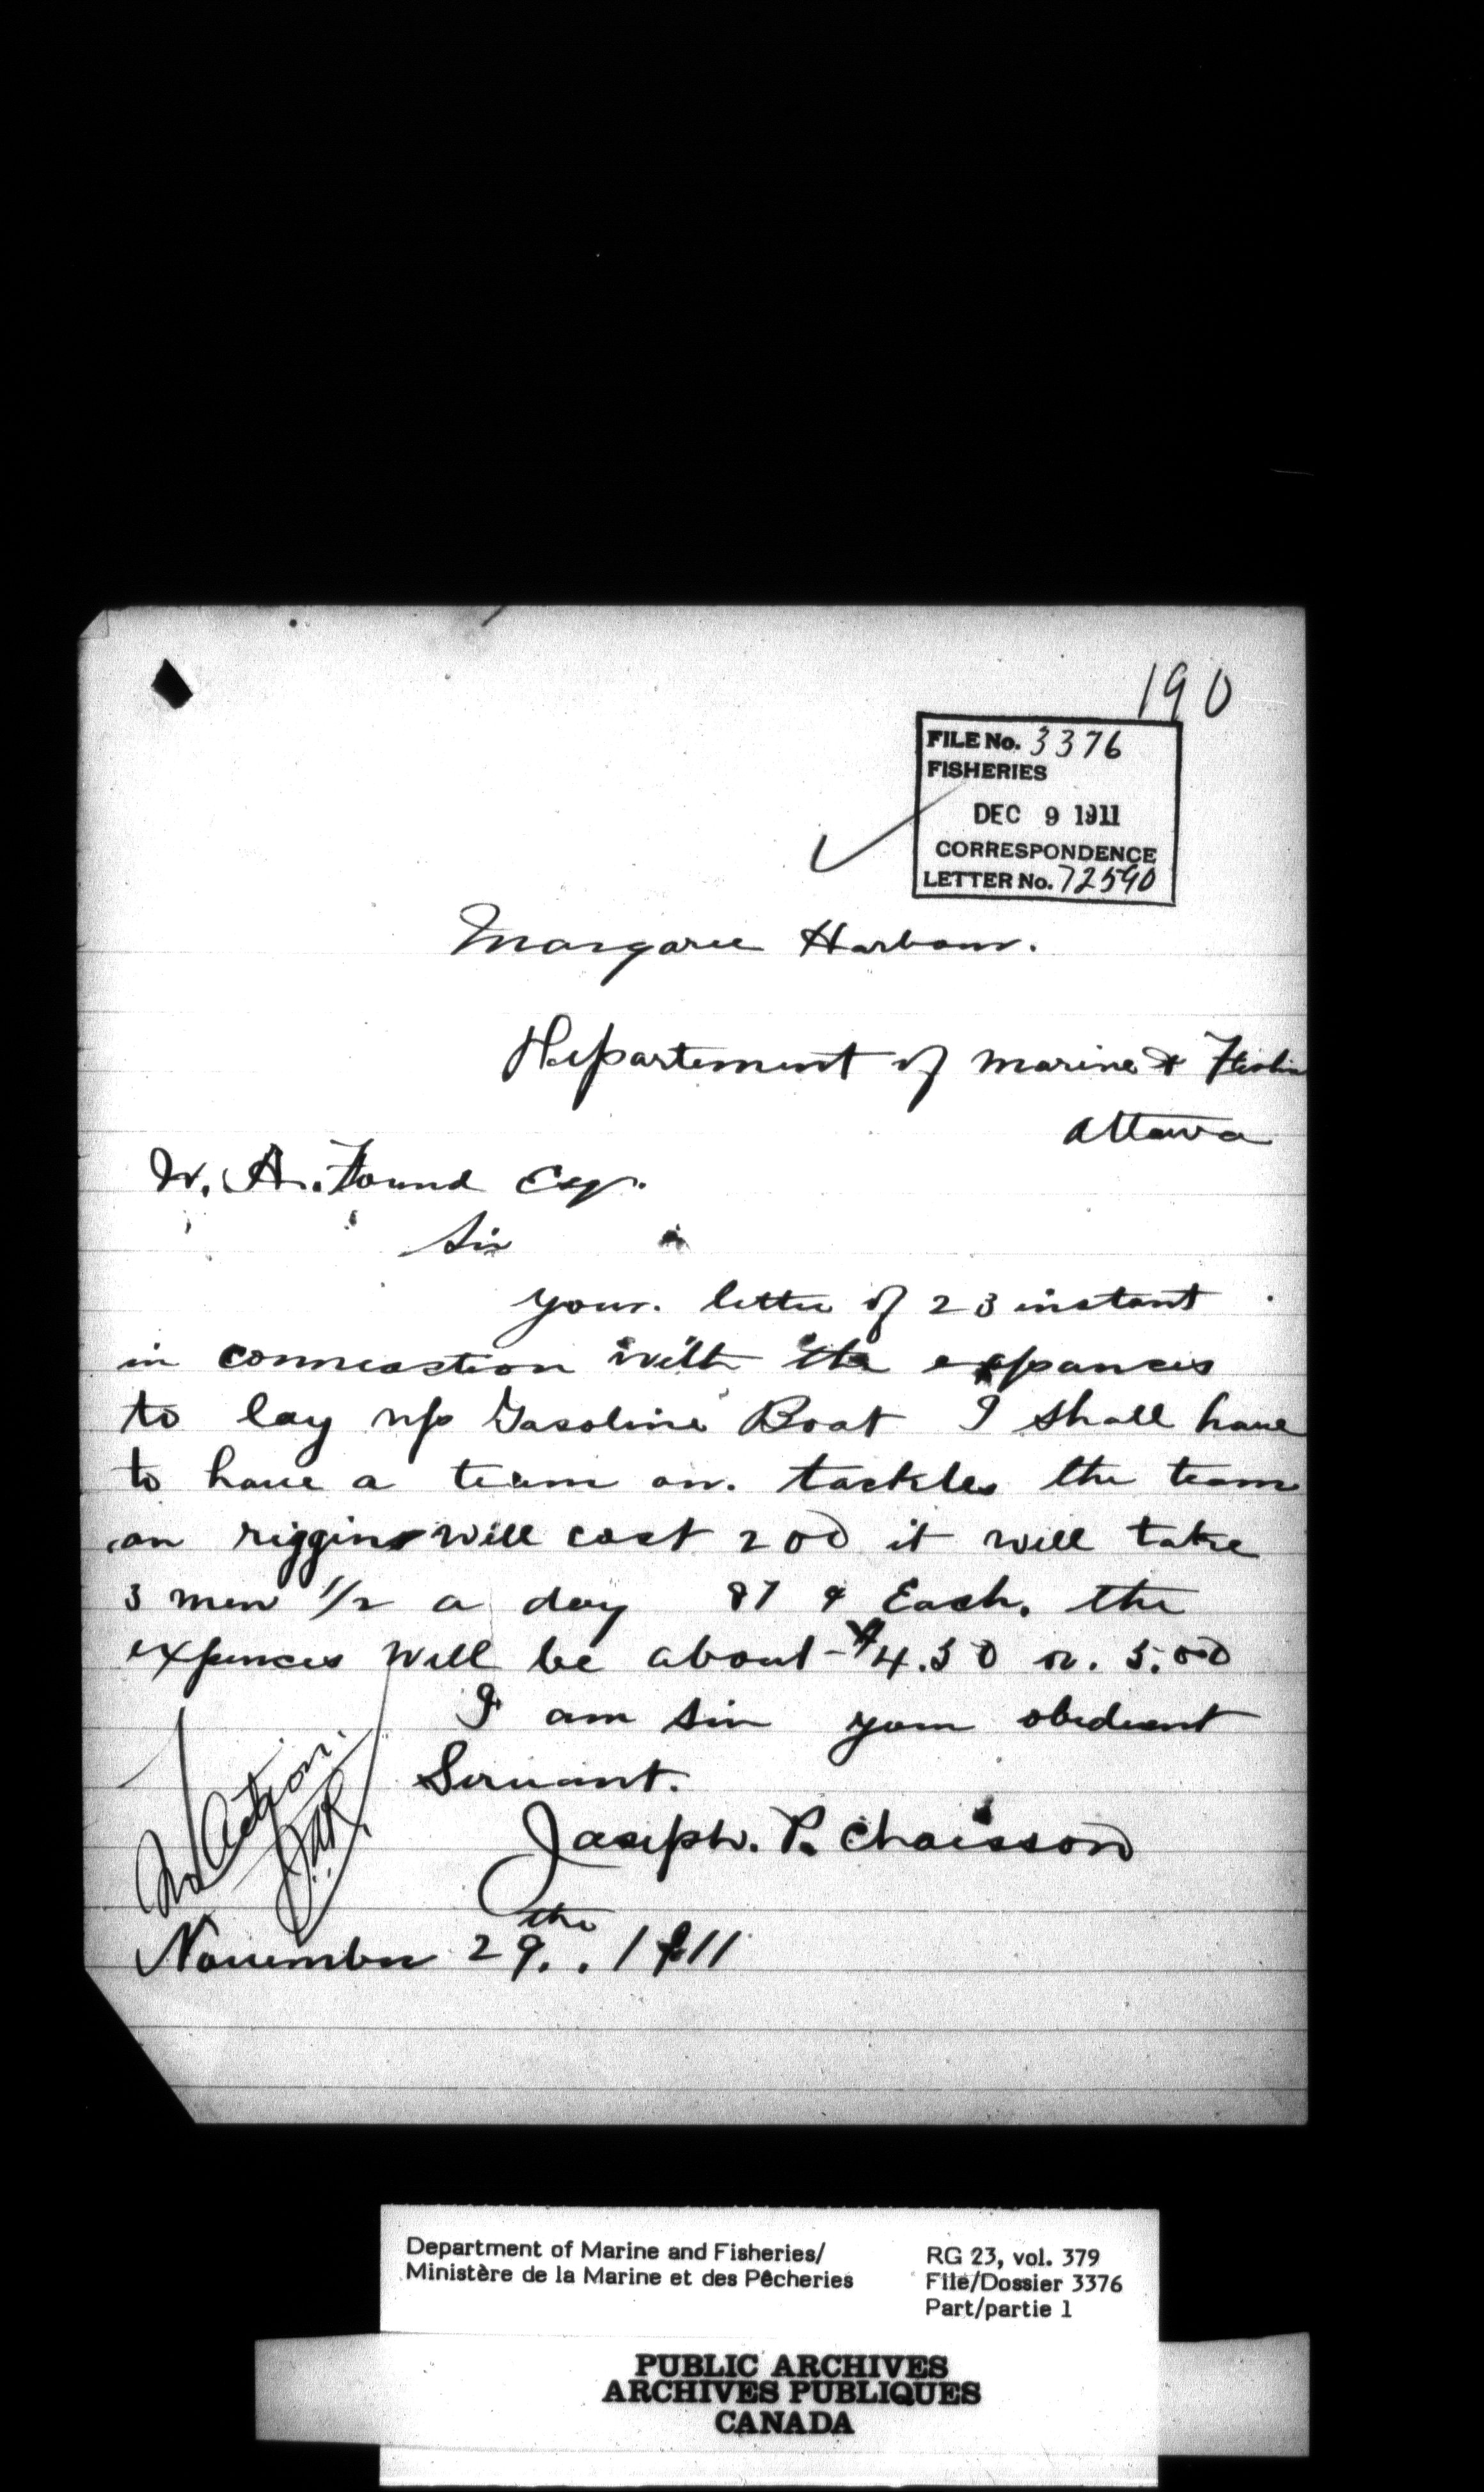 190
FILE No. 3376
FISHERIES
DEC 9 1911
CORRESPONDENCE
LETTER No. 72590
Margaree Harbour.
Departement of Marine & Fishie
Ottawa
W. A. Found Esq.
Sir
your. letter of 23 instant
in conneastion with the expances
to lay up Gasoline Boat I shall have
to have a team an. tackles the team
an riggins will cost 200 it will take
3 men 1/2 a day 87 ¢ Each. the
expences will be about $4.50 or. 5.00
I am sir your obedient
Servant.
Joseph. P. Chaisson
No Action.
November 29th. 1911
Department of Marine and Fisheries/
Ministère de la Marine et des Pêcheries
RG 23, vol. 379
File/Dossier 3376
Part/partie 1
PUBLIC ARCHIVES
ARCHIVES PUBLIQUES
CANADA